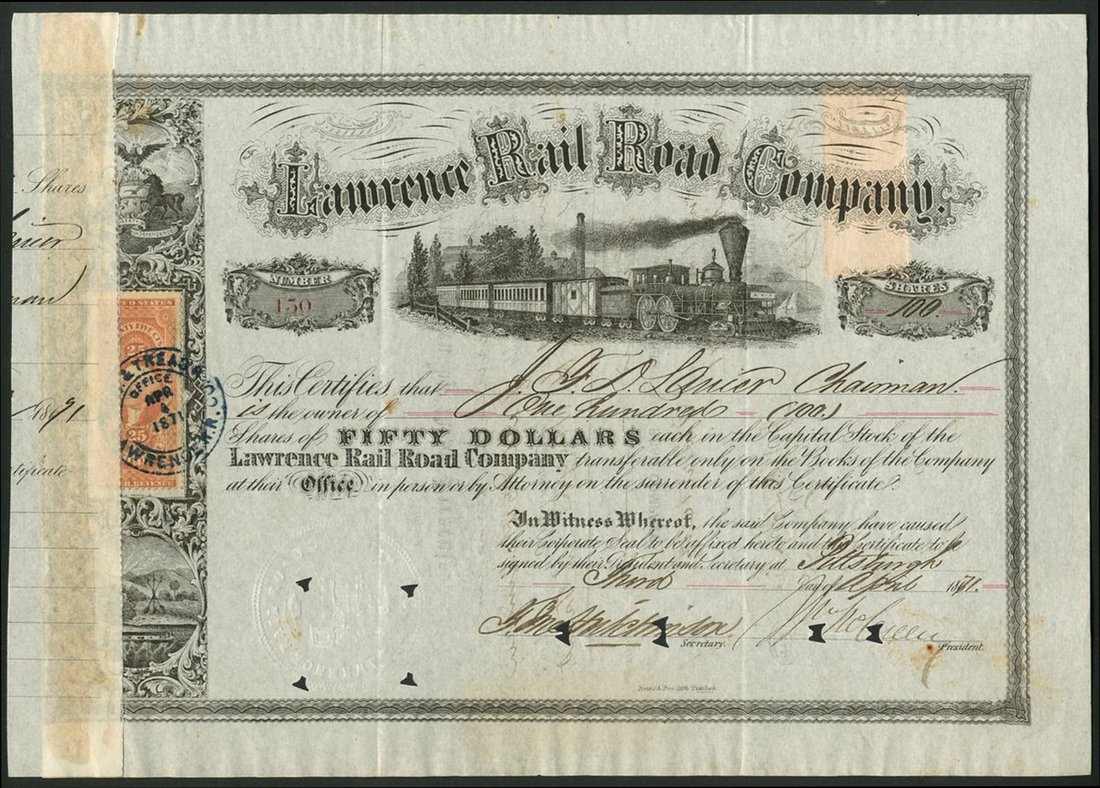 Shares
Lawrence Rail Road Company.
NUMBER
150
SHARES
100
UNITED STATES
25
OFFICE
APR
4
1871
25
1871
Certificate
This Certifies, that J. F. D. Lanier Chairman
is the owner of One hundred (100)
Shares of FIFTY DOLLARS each in the Capital Stock of the
Lawrence Rail Road Company transferable only on the Books of the Company
at their Office in person or by Attorney on the surrender of this Certificate.
In Witness Whereof, the said Company have caused
their Corporate Seal to be affixed hereto and this Certificate to be
signed by their President and Secretary at Pittsburgh
Third day of April 1871.
Secretary.
President.